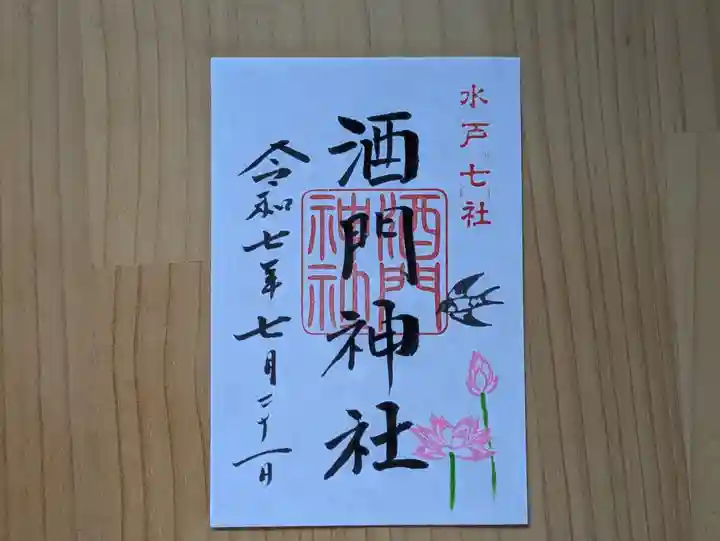 水戸七社
酒門神社
酒門
神社
令和七年七月二十一日